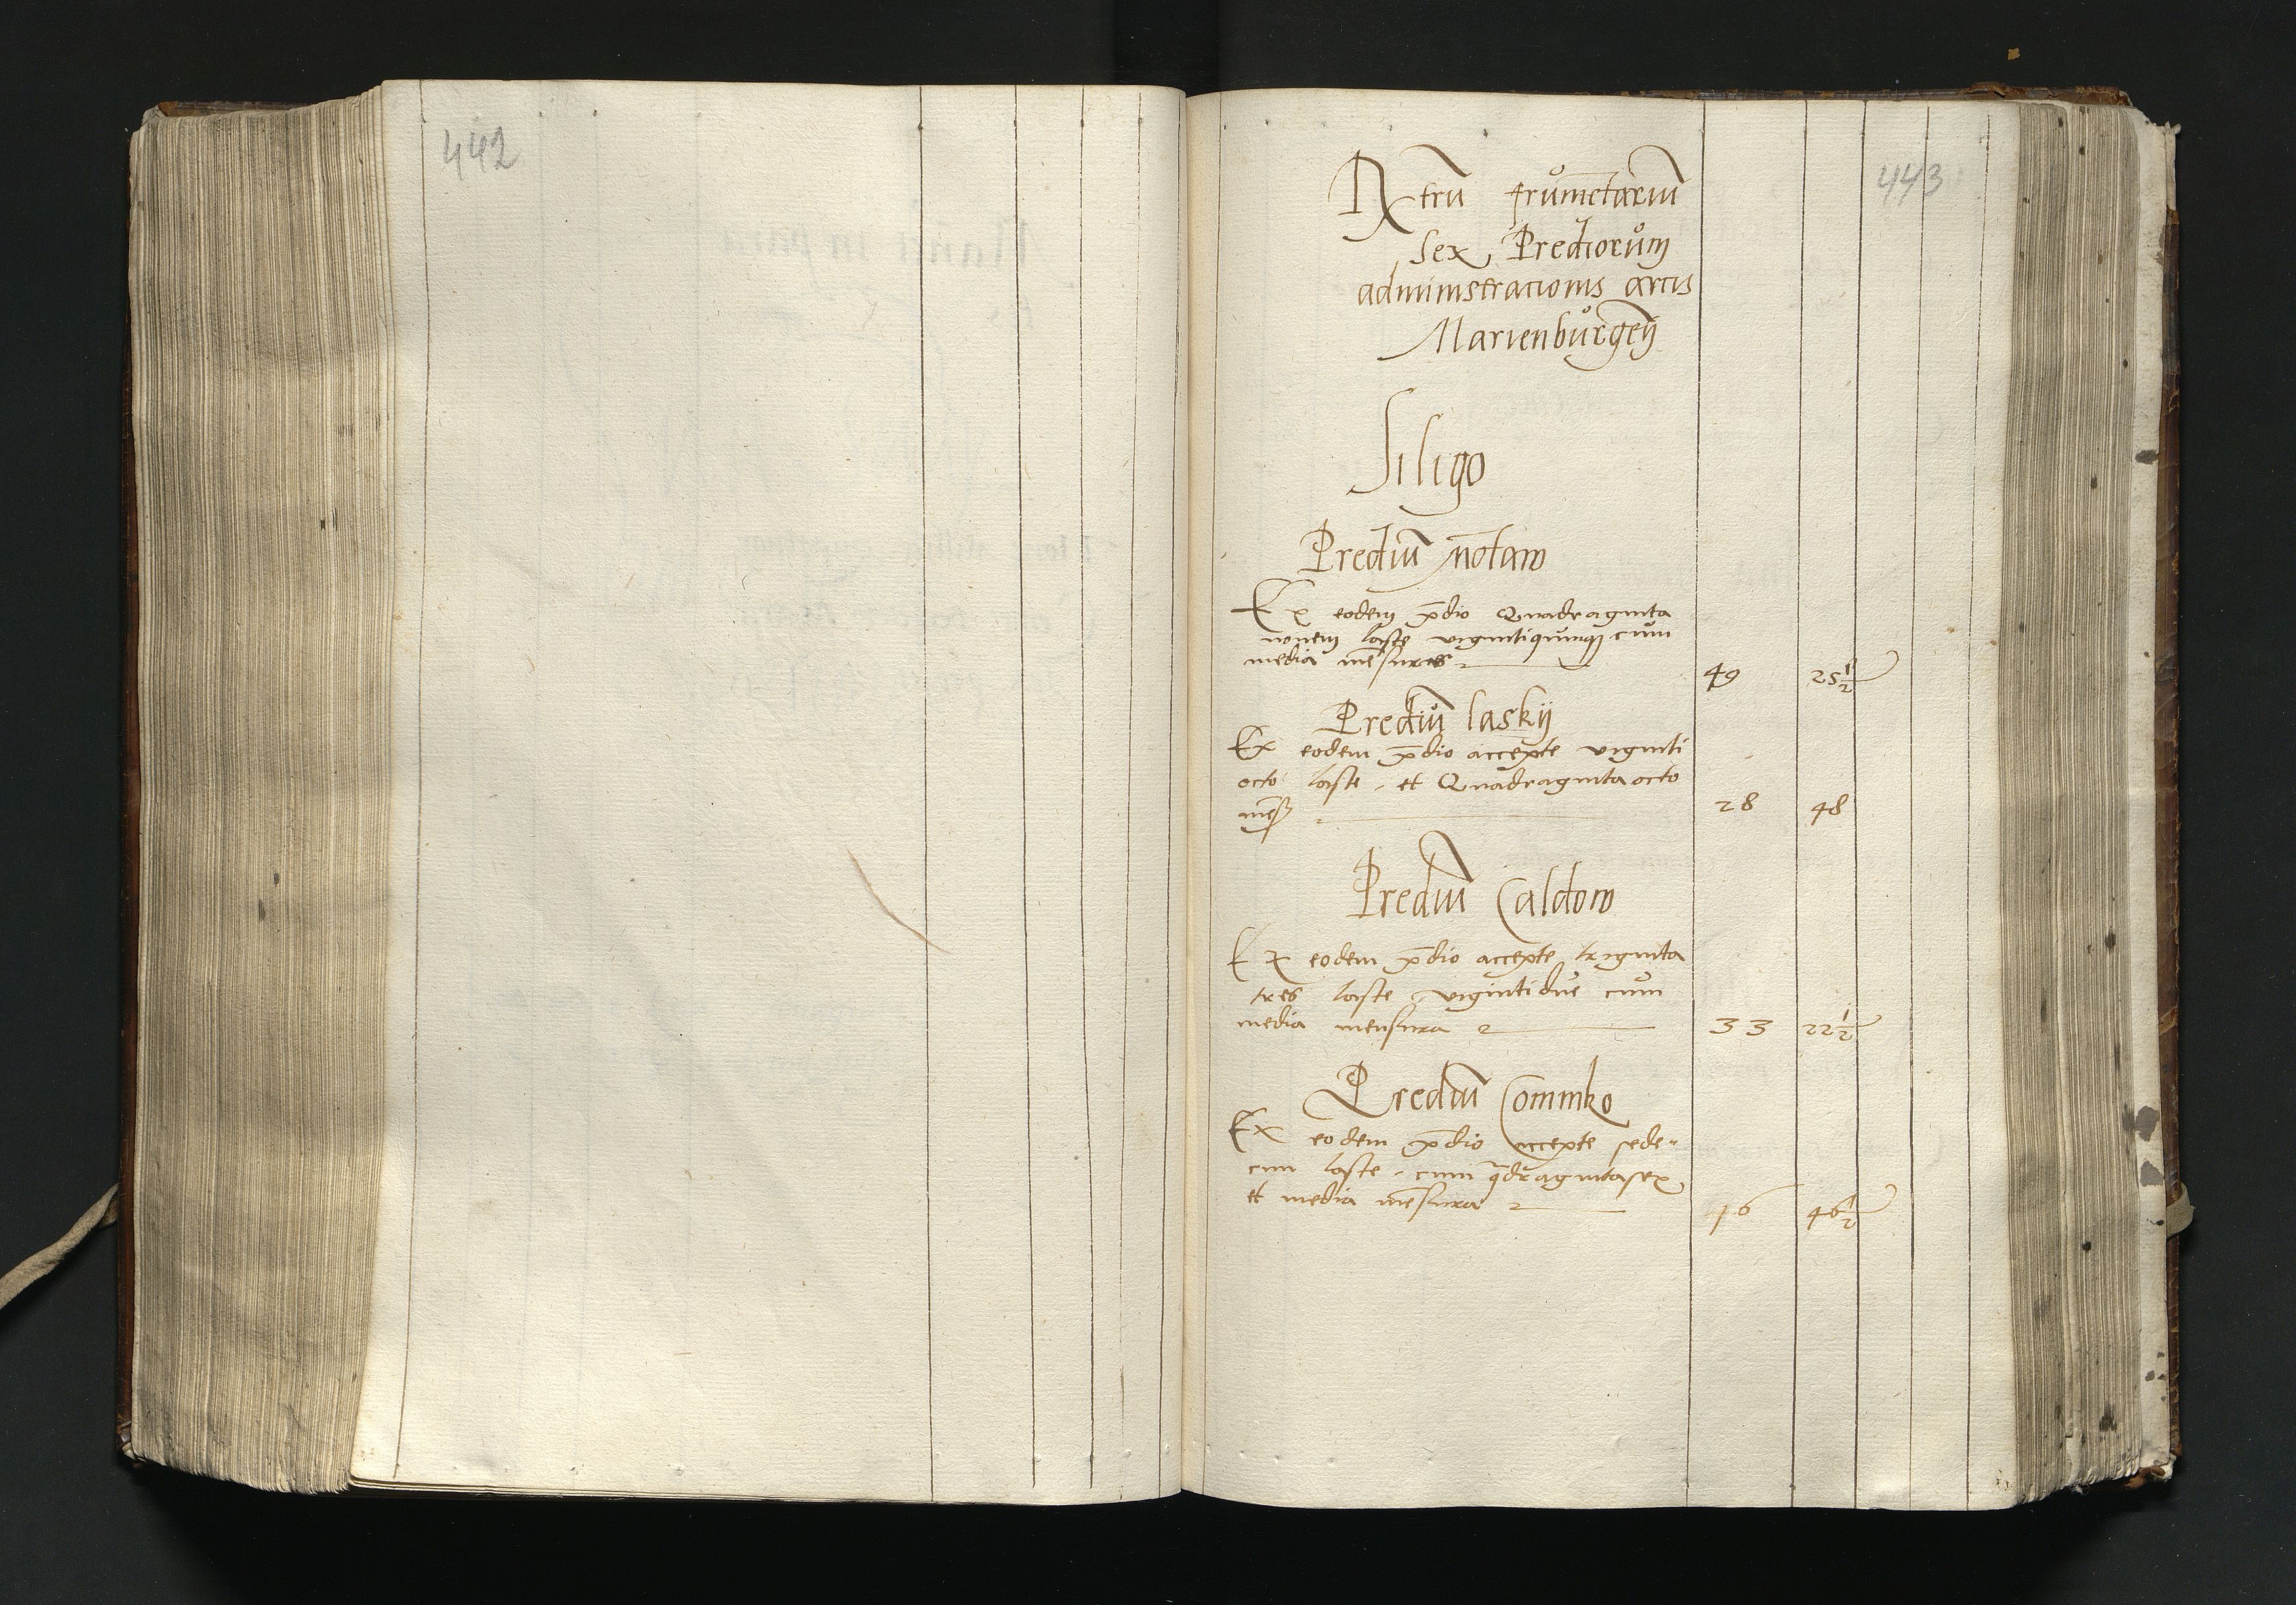 442
443
Rx̄trū frūmētariū
Sex Prediorům
administracionis arcis
Marienbůrgeñ
Siligo
Prediū
Ex eodem p̄dio Quadraginta
nouem laste vigintiquinqȝ cum
media mēsures
49 25½
Prediů laskij
Ex eodem p̄dio accepte viginti
octo laste, et Quadraginta octo
mēs
28 48
Prediū Caldow
Ex eodem p̄dio accepte triginta
tres laste vigintidue cum
media mensura
33 22½
Prediū
Ex eodem p̄dio accepte sede"
cim laste, cum q̄dragintasex
et media mēsura
16 46½